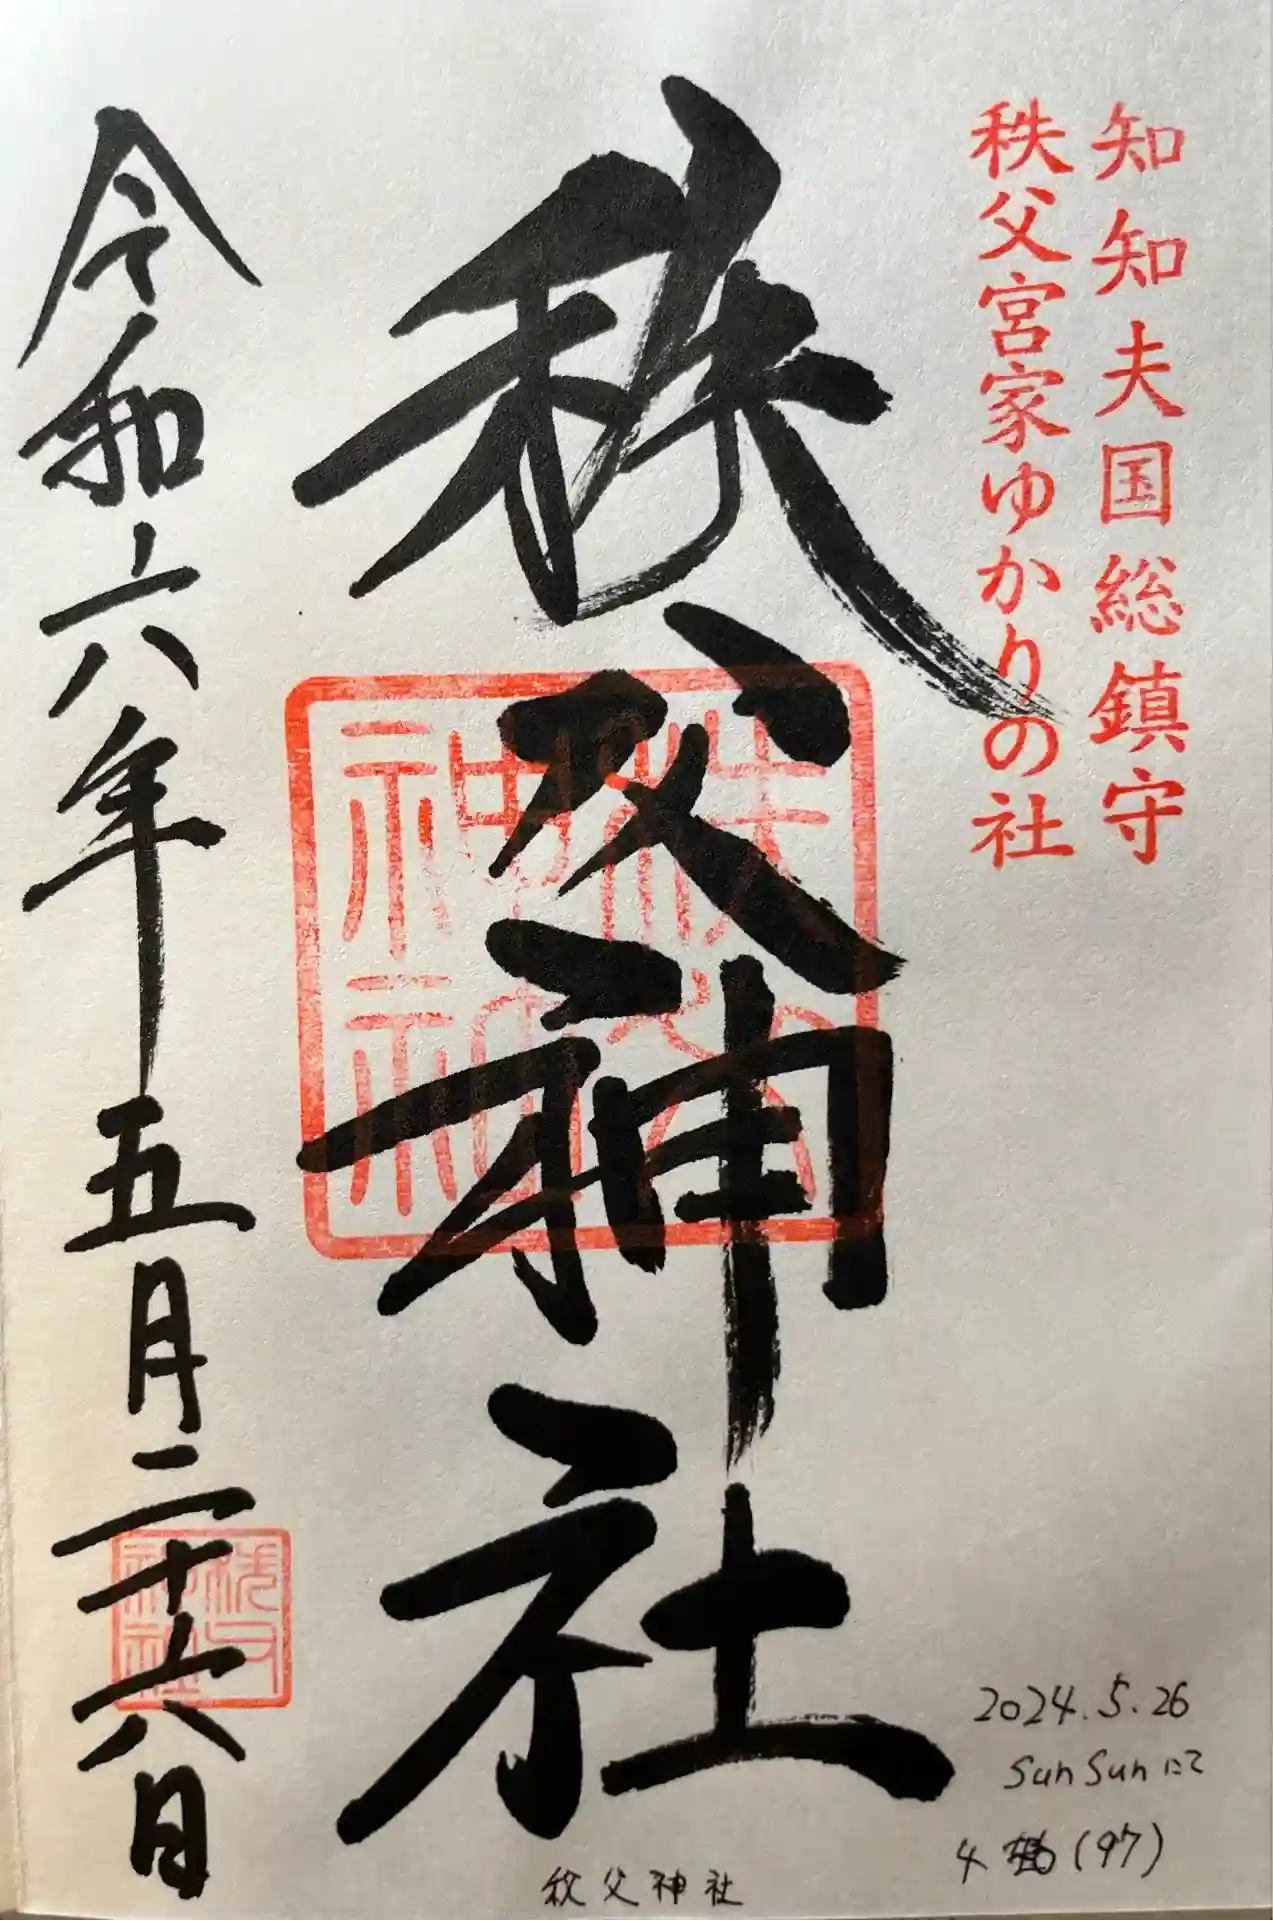 知知夫国総鎮守
秩父宮家ゆかりの社
秩父神社
秩父神社
令和六年五月二十六日
秩父神社
2024.5.26
Sun Sunにて
(97)
秩父神社